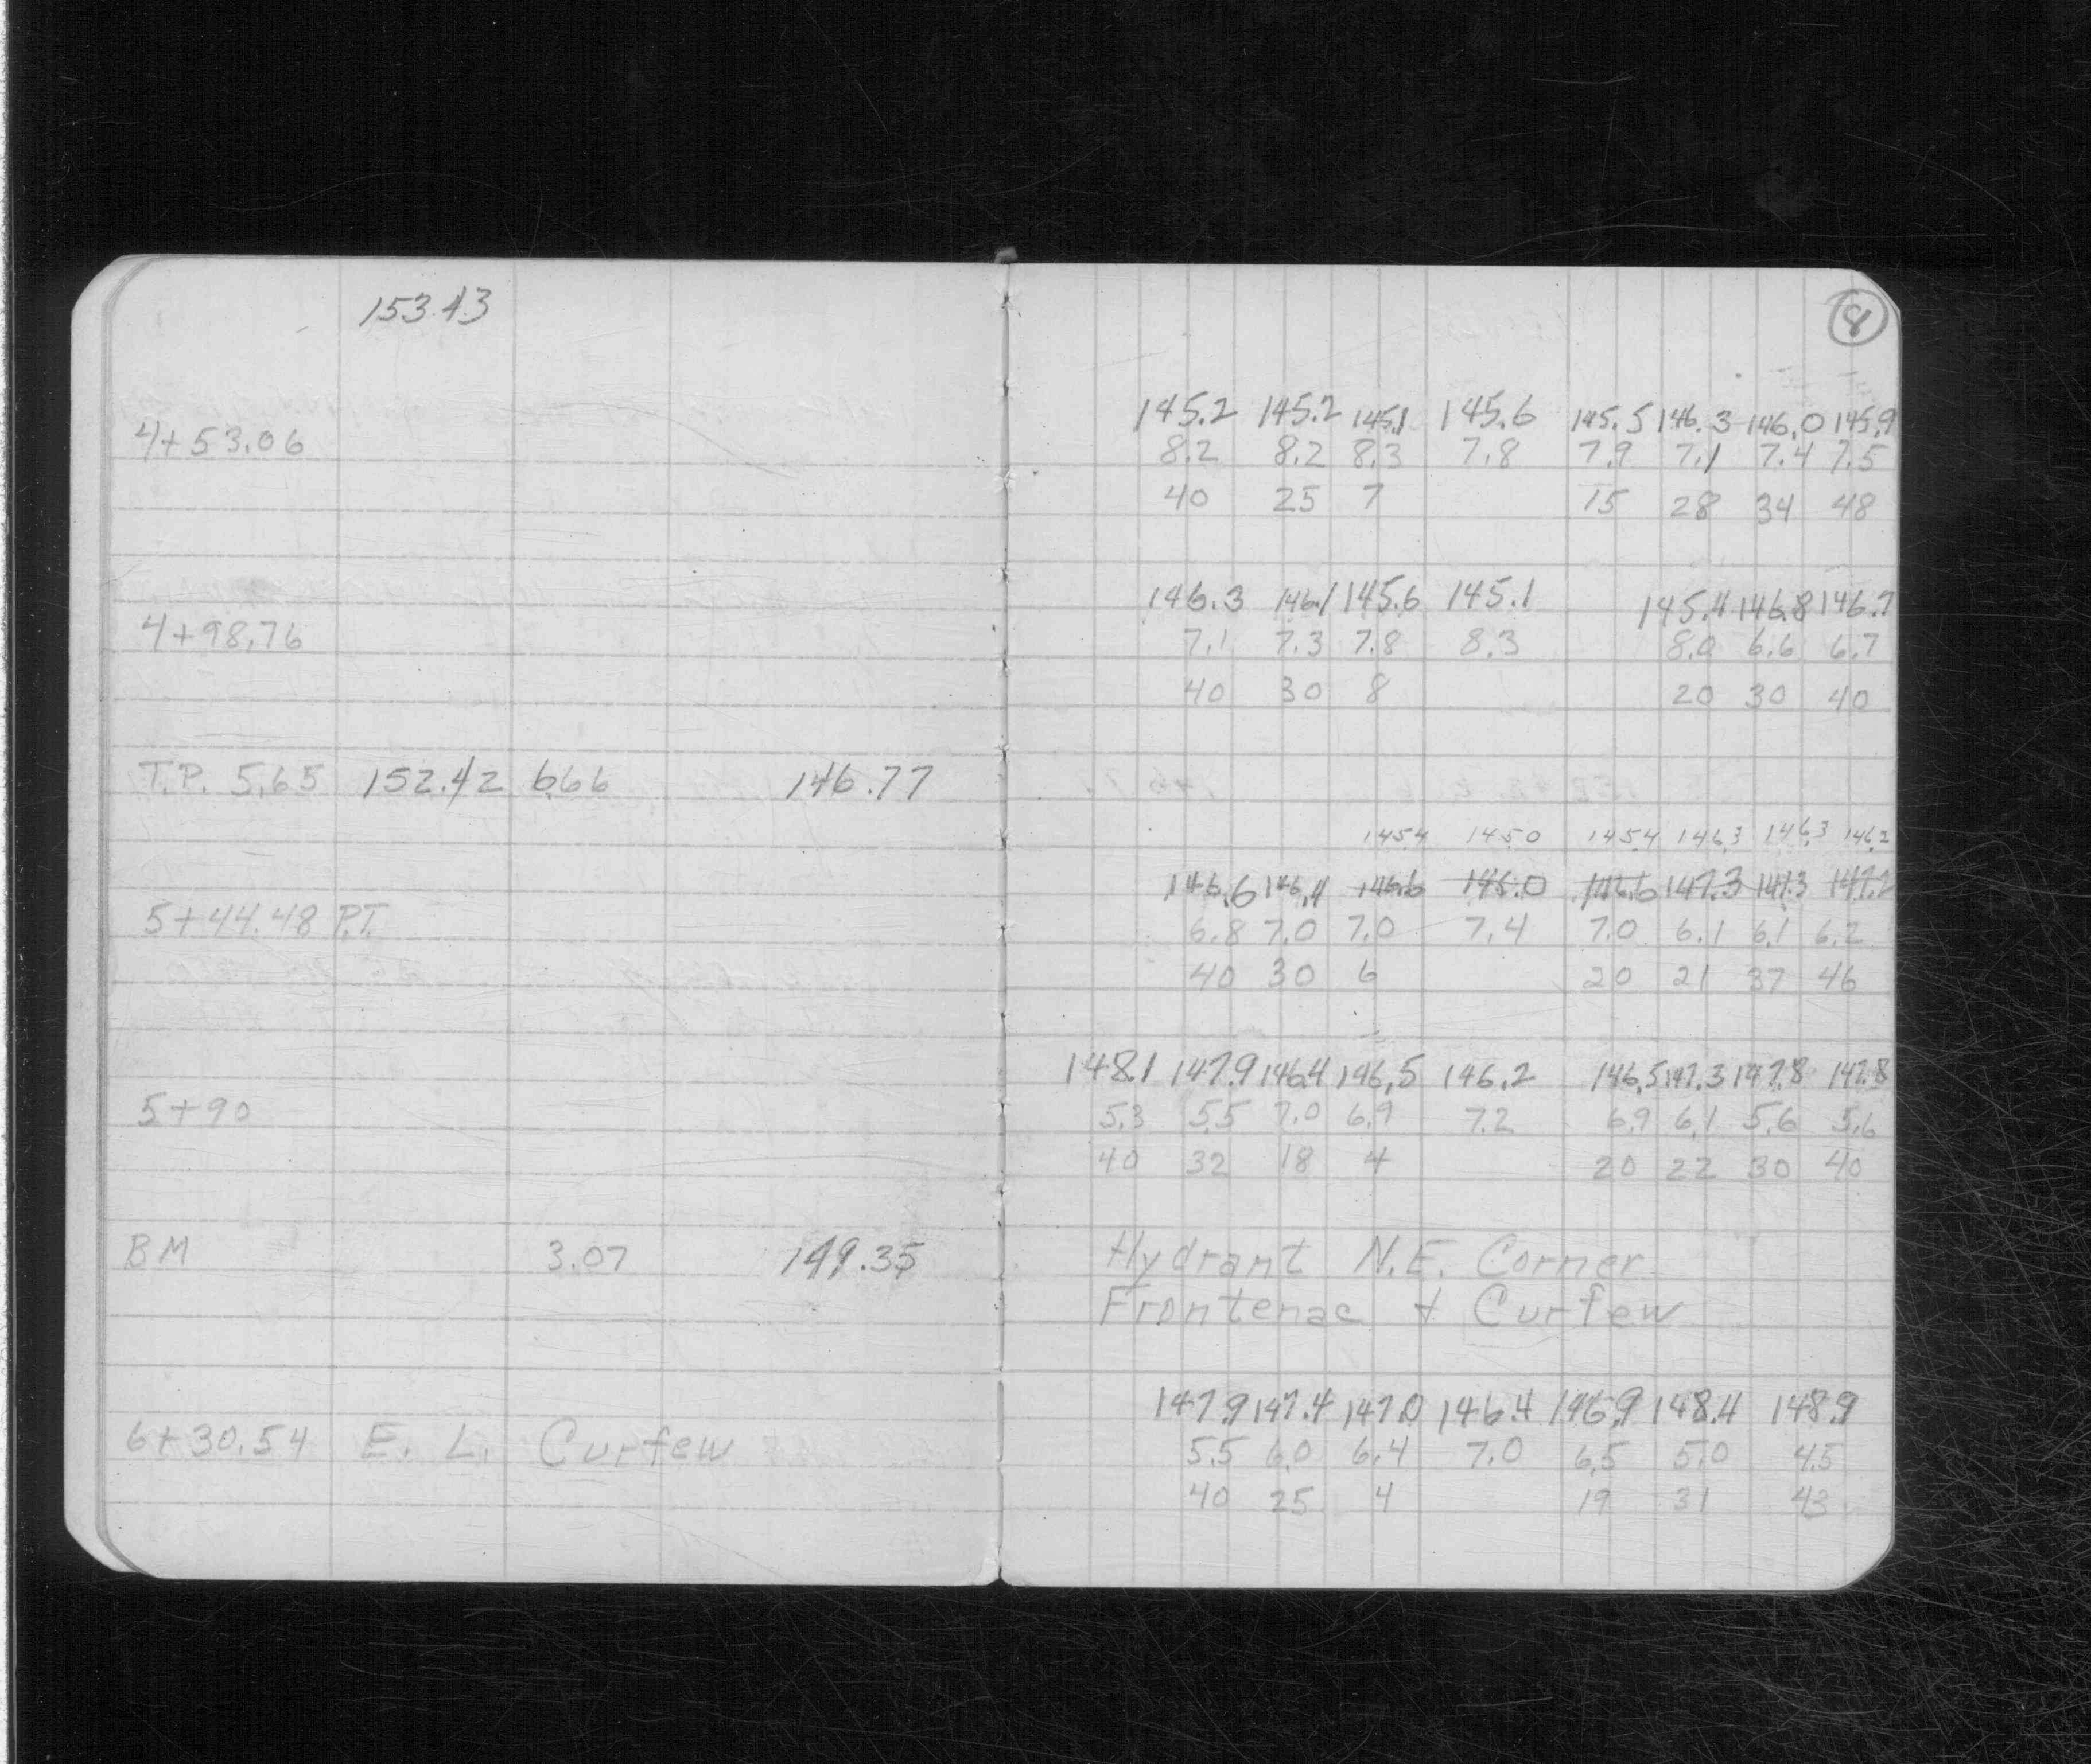 153.43
8
145.2 145.2 145.1 145.6 145.5 146.3 146.0 145.9
4+53.06 8.2 8.2 8.3 7.8 7.9 7.1 7.4 7.5
40 25 7 15 28 34 48
146.3 146.1 145.6 145.1 145.4 146.8 146.7
4+98.76 7.1 7.3 7.8 8.3 8.0 6.6 6.7
40 30 8 20 30 40
T.P. 5.65 152.42 6.66 146.77
145.4 145.0 145.4 146.3 146.3 146.2
146.6 146.4 146.6 146.0 146.6 147.3 147.3 147.2
5+44.48 P.T. 6.8 7.0 7.0 7.4 7.0 6.1 6.1 6.2
40 30 6 20 21 37 46
148.1 147.9 146.4 146.5 146.2 146.5 147.3 147.8 147.8
5+90 5.3 5.5 7.0 6.9 7.2 6.9 6.1 5.6 5.6
40 32 18 4 20 22 30 40
BM 3.07 149.35 Hydrant N.E. Corner
Frontenac + Curfew
147.9 147.4 147.0 146.4 146.9 148.4 148.9
6+30.54 E. L. Curfew 5.5 6.0 6.4 7.0 6.5 5.0 4.5
40 25 4 19 31 43